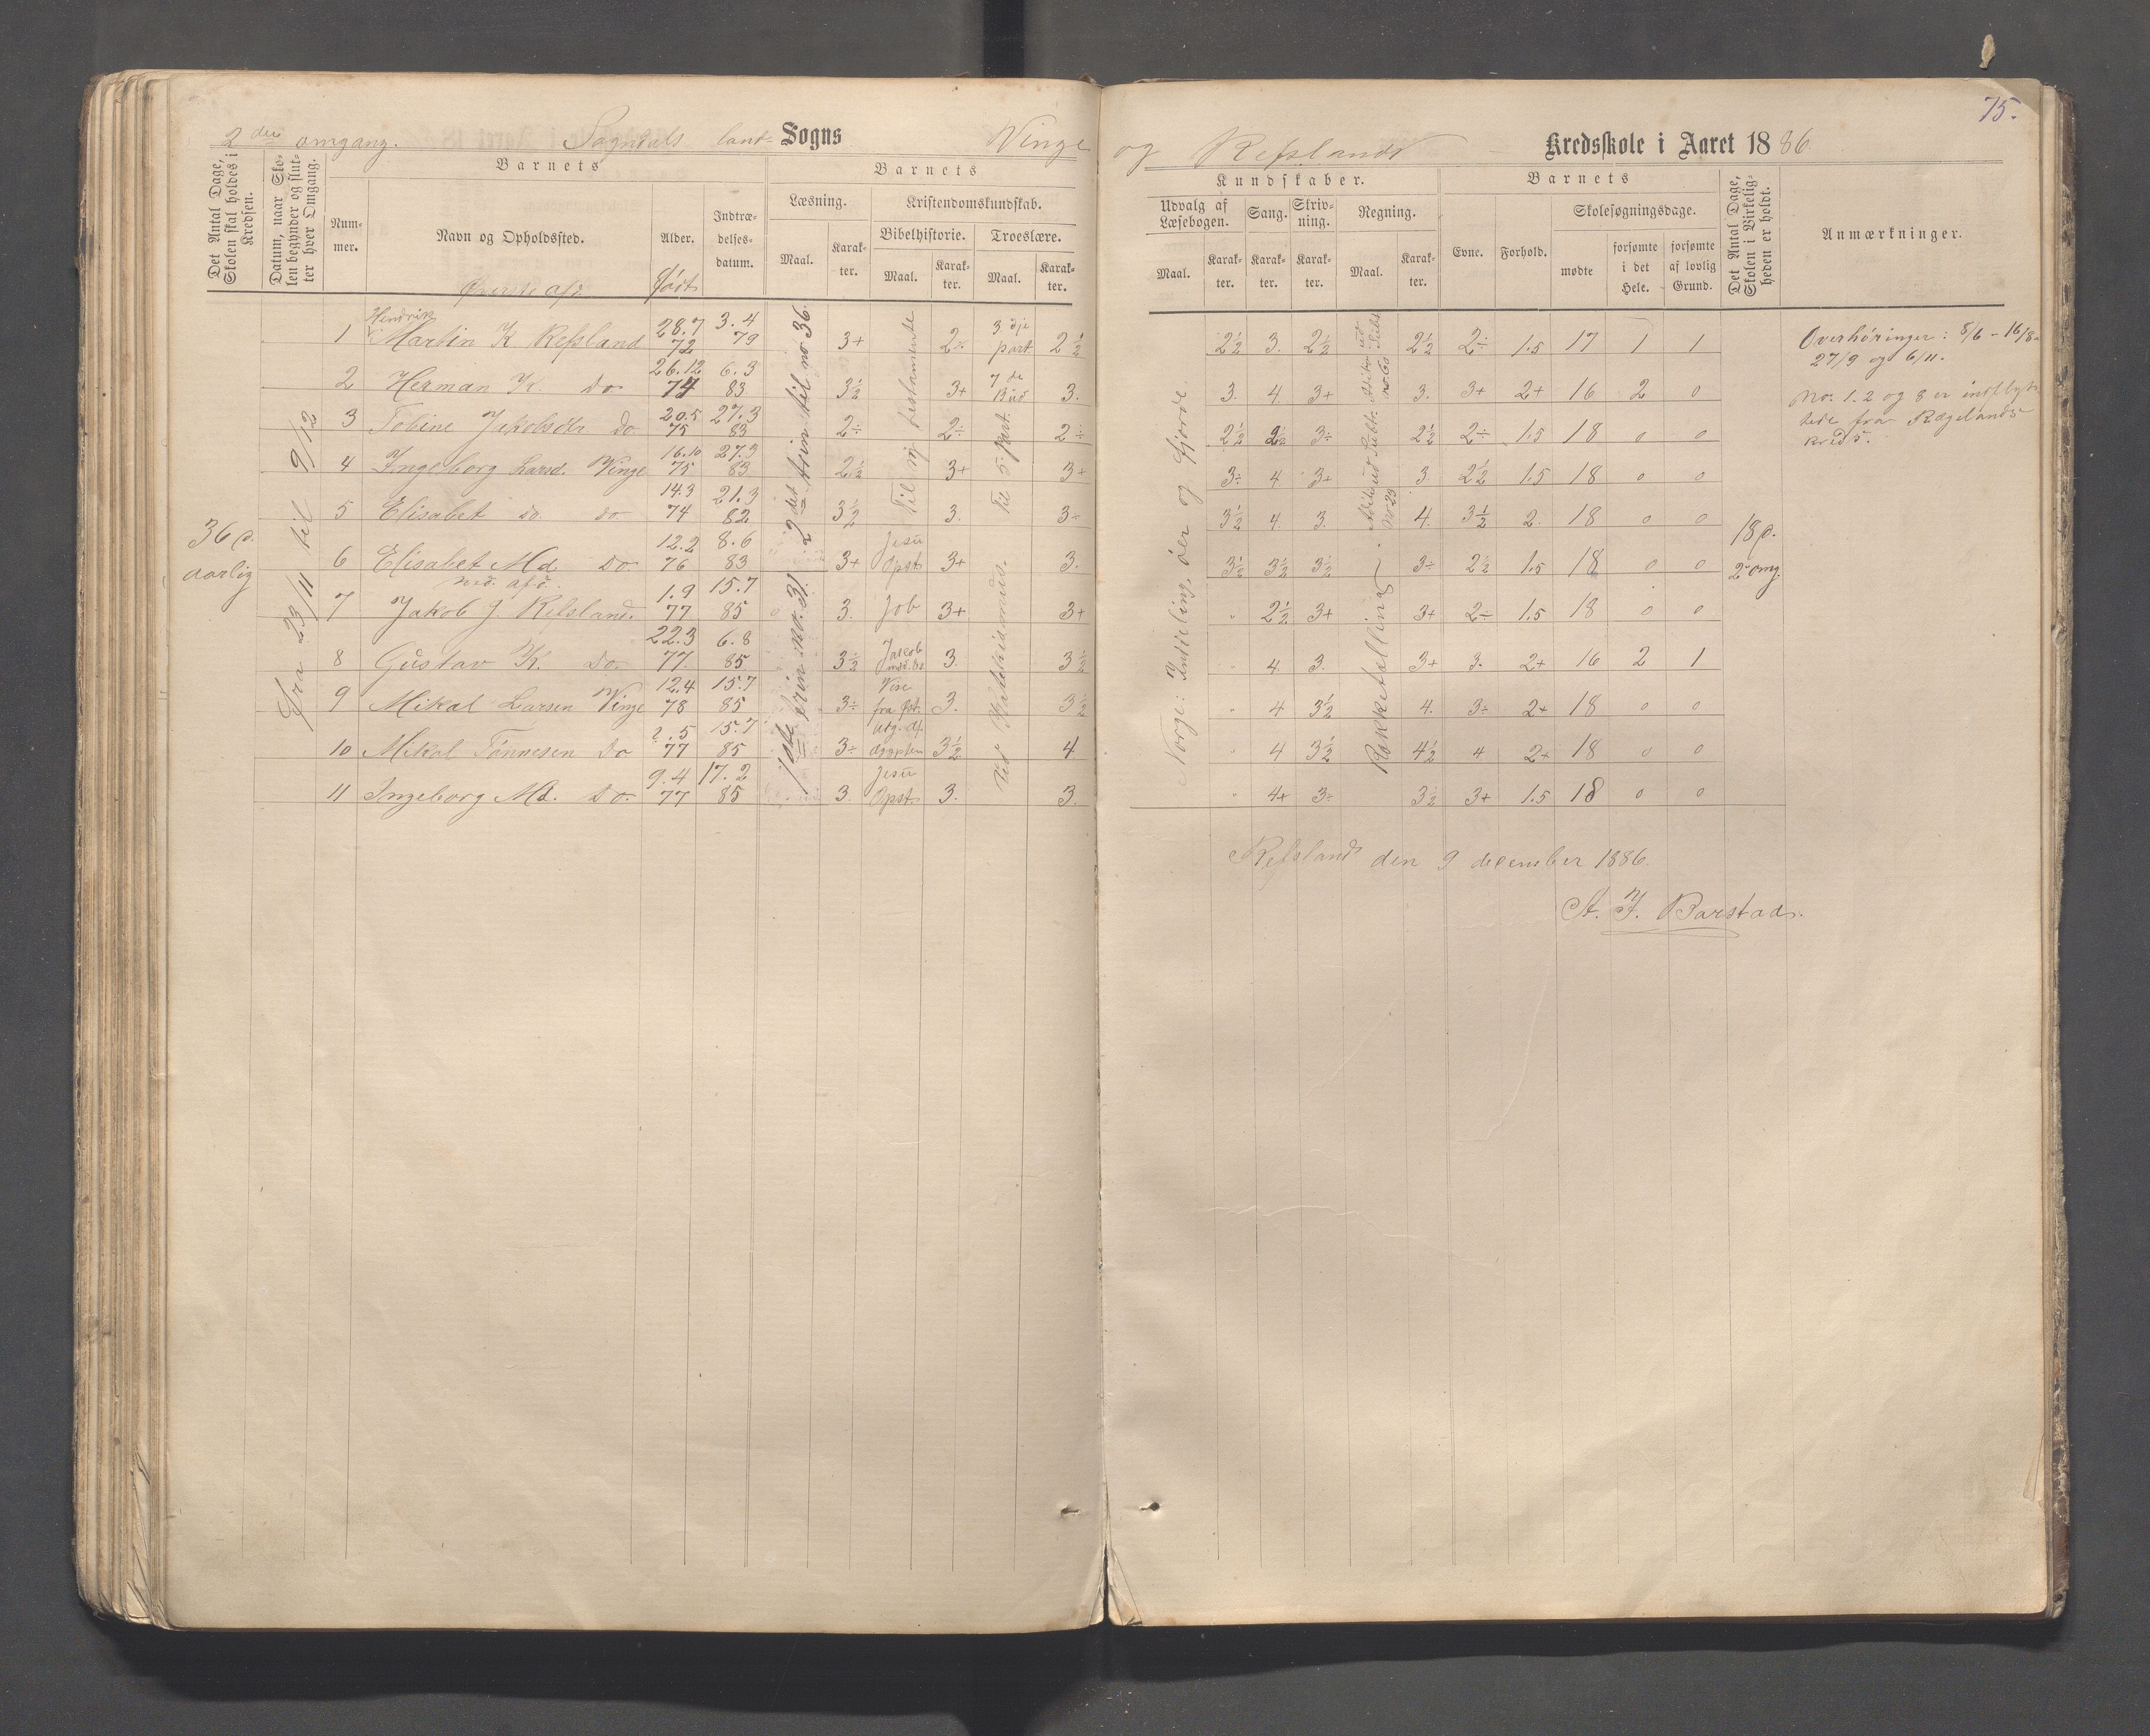 75.
2den omgang. Sogndals Sogns Vinge og Refslands Kredsskole i Aaret 1886
Det Antal Dage, Skolen skal holdes i Kredsen.
Datum, naar Skolen begynder og slutter hver Omgang.
Barnets
Nummer.
Navn og Opholdssted.
Alder.
født
Indtrædelsesdatum.
Øverste afd.
Barnets
Læsning.
Maal.
Karakter.
Kristendomskundskab.
Bibelhistorie.
Maal.
Karakter.
Troeslære.
Maal.
Karakter.
Kundskaber.
Udvalg af Læsebogen.
Maal.
Karakter.
Sang.
Karakter.
Skrivning.
Karakter.
Regning.
Maal.
Karakter.
Barnets
Evne.
Forhold.
Skolesøgningsdage.
mødte
forsømte i det Hele.
forsømte af lovlig Grund.
Det Antal Dage, Skolen i Virkeligheden er holdt.
Anmærkninger.
36 d. aarlig
Fra 23/11 til 9/12
1 Hendrik Martin K Refsland 28.7 72 3.4 79 3+ 2÷ 3dje part 2½ 2½ 3. 2½ 2½ 2÷ 1.5 17 1 1
2 Herman K. Do 26.12 74 6.3 83 3½ 3+ 7de Bud 3. 3. 4. 3+ 3. 3+ 2+ 16 2 0
3 Tobine Jakobsdtr Do 20.5 75 27.3 83 2÷ 2÷ 2÷ 2½ 2½ 3÷ 2½ 2÷ 1.5 18 0 0
4 Ingeborg Larsd. Vinge 16.10 75 27.3 83 2½ 3+ 3+ 3÷ 4. 3+ 3. 2½ 1.5 18 0 0
5 Elisabet do. do 14.3 74 21.3 82 3½ 3. 3÷ 3½ 4. 3. 4. 3½ 2. 18 0 0
6 Elisabet Md. Do 12.2 76 8.6 83 3+ Jesu Opst. 3+ 3. 3½ 3½ 3½ 3÷ 2½ 1.5 18 0 0
ned. afd.
7 Jakob J. Refsland. 1.9 77 15.7 85 3. Job 3+ 3+ " 2½ 3+ 3+ 2÷ 1.5 18 0 0
8 Gustav K. Do 22.3 77 6.8 85 3½ Jacob 3. 3½ " 4. 3. 3+ 3. 2+ 16 2 1
9 Mikal Larsen Vinge 12.4 78 15.7 85 3÷ 3. 3½ " 4 3½ 4. 3÷ 2+ 18 0 0
10 Mikal Tönnesen Do ?.5 77 15.7 85 3÷ 3½ 4 " 4 3½ 4½ 4 2+ 18 0 0
11 Ingeborg Md. Do. 9.4 77 17.2 85 3. Jesu Opst. 3. 3. " 4+ 3÷ 3½ 3+ 1.5 18 0 0
2det trin til no 36.
1ste trin no. 31.
Til ny testamente
Til 5. part.
Norge: Inddeling, øer og fjorde.
Rækketælling
18 d. 2 omg.
Overhøringer: 8/6 – 16/8 –
27/9 og 6/11.
No. 1. 2 og 8 er indflyt-
tede fra Rægelands
kreds.
Refsland den 9 december 1886.
A. F. Barstad.